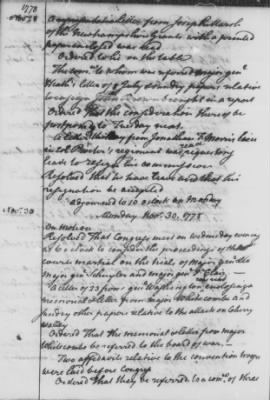 1778
A letter from Joseph Marsh
of the Newhampshire Grants with a printed
paper enclosed was read
Ordered to lie on the table
The com. to whom was referred major gen.
letter of July sundry papers relative
brought in a report
Ordered That the consideration thereof be
postponed to Tuesday next
A letter from Jonathan
in regiment was requesting
leave to resign his commission
Resolved That he have leave and that his
resignation be accepted
Adjourned to 10 o'Clock on Monday
Monday Nov. 30. 1778
On motion
Resolved That Congress meet on Wednesday evening
at 6 o'clock to consider the proceedings of the
courts martial on the trials of major gen. Lee
major gen. Schuyler and major gen. St Clair
A letter of 23 from gen Washington enclosing a
memorial & letter from major Whitcomb and
sundry other papers relative to the attack on Cherry
Valley
Ordered That the memorial & letter from major
Whitcomb be referred to the board of war
Two affidavits relative to the convention troops
were laid before Congress
Ordered That they be referred to a com. of three